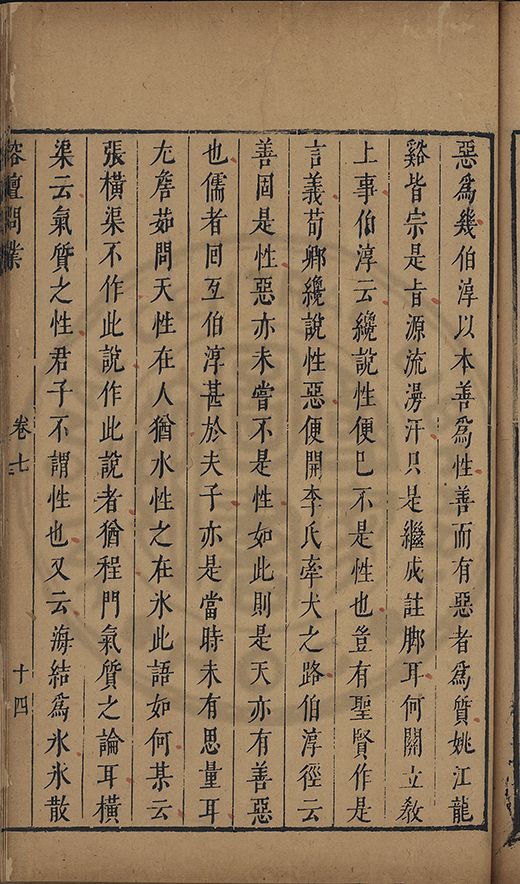 惡爲幾伯淳以本善爲性善而有惡者爲質姚江龍
谿皆宗是旨源流漭汗只是繼成註脚耳何關立敎
上事伯淳云纔說性便已不是性也豈有聖賢作是
言義荀卿纔說性惡便開李氏牽犬之路伯淳徑云
善固是性惡亦未嘗不是性如此則是天亦有善惡
也儒者回互伯淳甚於夫子亦是當時未有思量耳
尢詹茹問天性在人猶水性之在氷此語如何某云
張橫渠不作此說作此說者猶程門氣質之論耳橫
渠云氣質之性君子不謂性也又云海結爲氷氷散
榕壇問業
卷七
十四